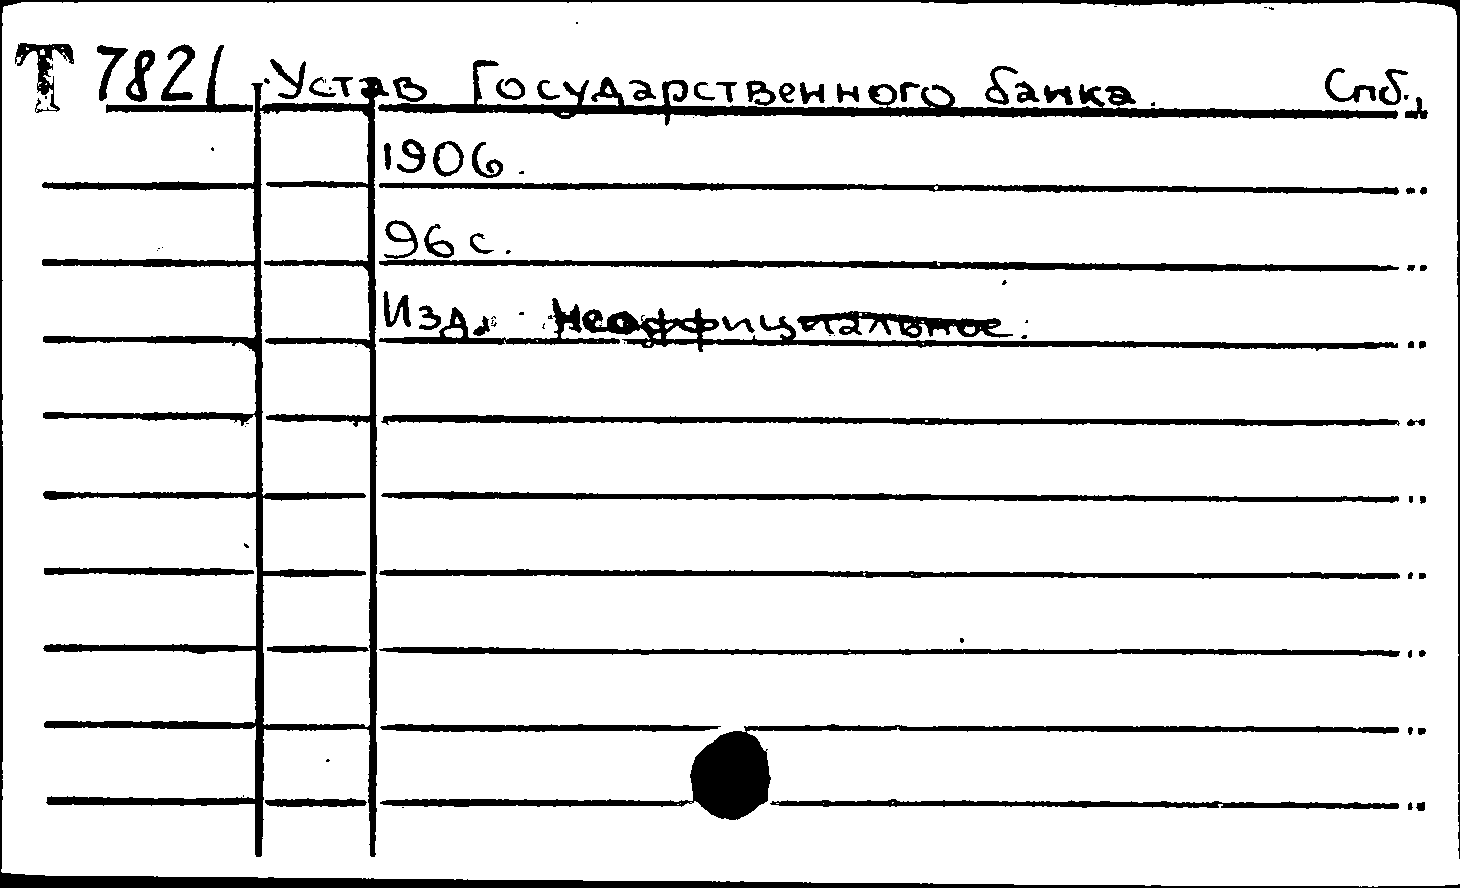 Т 7821 Устав Государственного банка. Спб.,
1906.
96 с.
Изд. неоффициальное.